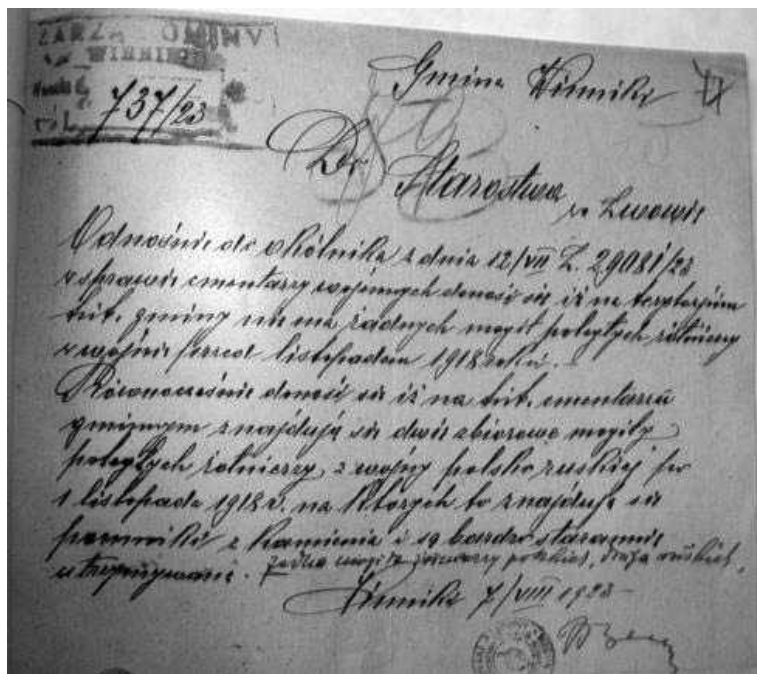 ZARZĄD GMINY
WINNIKI
737/23
Gmina Winniki
Do Starostwa
we Lwowie
Odnośnie do okólnika z dnia 12/VII L. 29081/23
w sprawie cmentarzy wojennych donosi się iż na terytorjum
tut. gminy nie ma żadnych mogił poległych żołnierzy
w wojnie przed listopadem 1918 roku.
Równocześnie donosi się iż na tut. cmentarzu
gminnym znajdują się dwie zbiorowe mogiły
poległych żołnierzy z wojny polsko ruskiej po
1 listopada 1918 r. na których to znajdują się
pomniki z kamienia i są bardzo starannie
utrzymywane. Jedna mogiła żołnierzy polskich, druga ruskich.
Winniki 7/VIII 1923